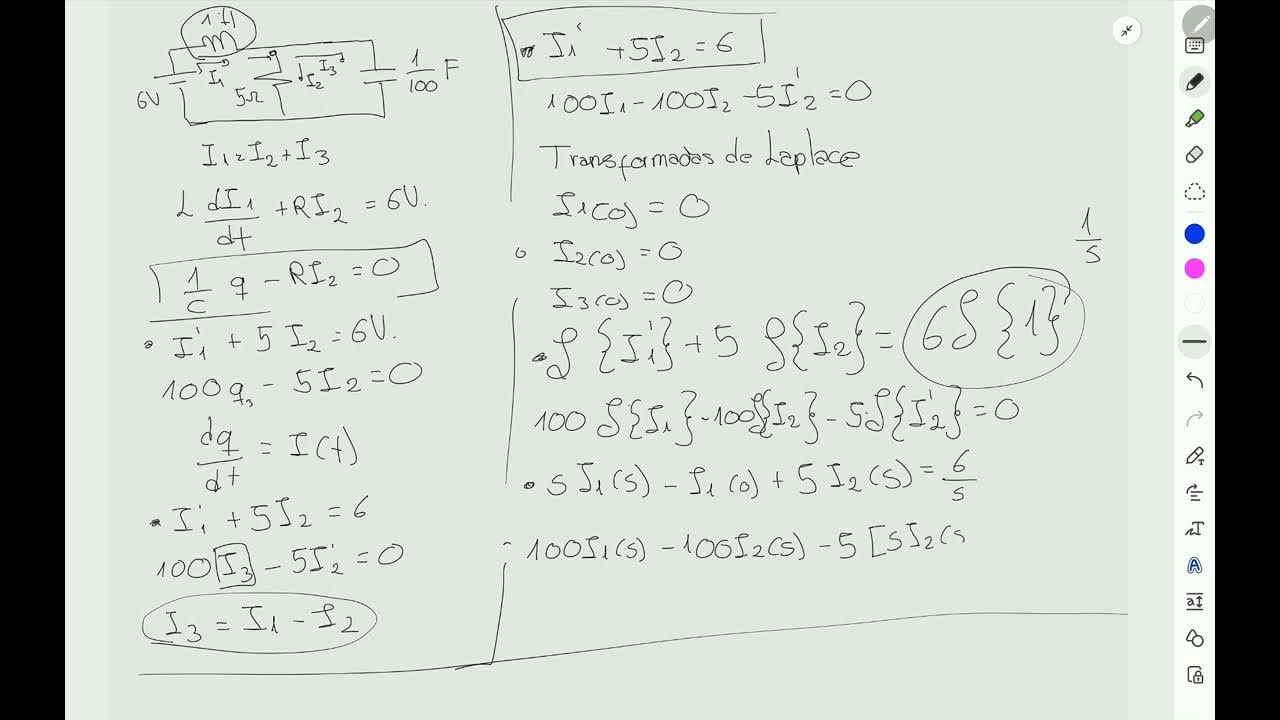 1H
6V
I₁
5Ω
I₂
I₃
1/100 F
I₁ = I₂ + I₃
L dI₁/dt + RI₂ = 6V.
1/C q - RI₂ = 0
• I₁' + 5 I₂ = 6V.
100q₃ - 5I₂ = 0
dq/dt = I(t)
• I₁' + 5I₂ = 6
100 I₃ - 5I₂' = 0
I₃ = I₁ - I₂
• I₁' + 5I₂ = 6
100I₁ - 100I₂ - 5I₂' = 0
Transformadas de Laplace
I₁(0) = 0
I₂(0) = 0
I₃(0) = 0
1/s
• ℒ{I₁'} + 5 ℒ{I₂} = 6ℒ{1}
100 ℒ{I₁} - 100ℒ{I₂} - 5·ℒ{I₂'} = 0
• s I₁(s) - I₁(0) + 5 I₂(s) = 6/s
- 100I₁(s) - 100I₂(s) - 5 [sI₂(s